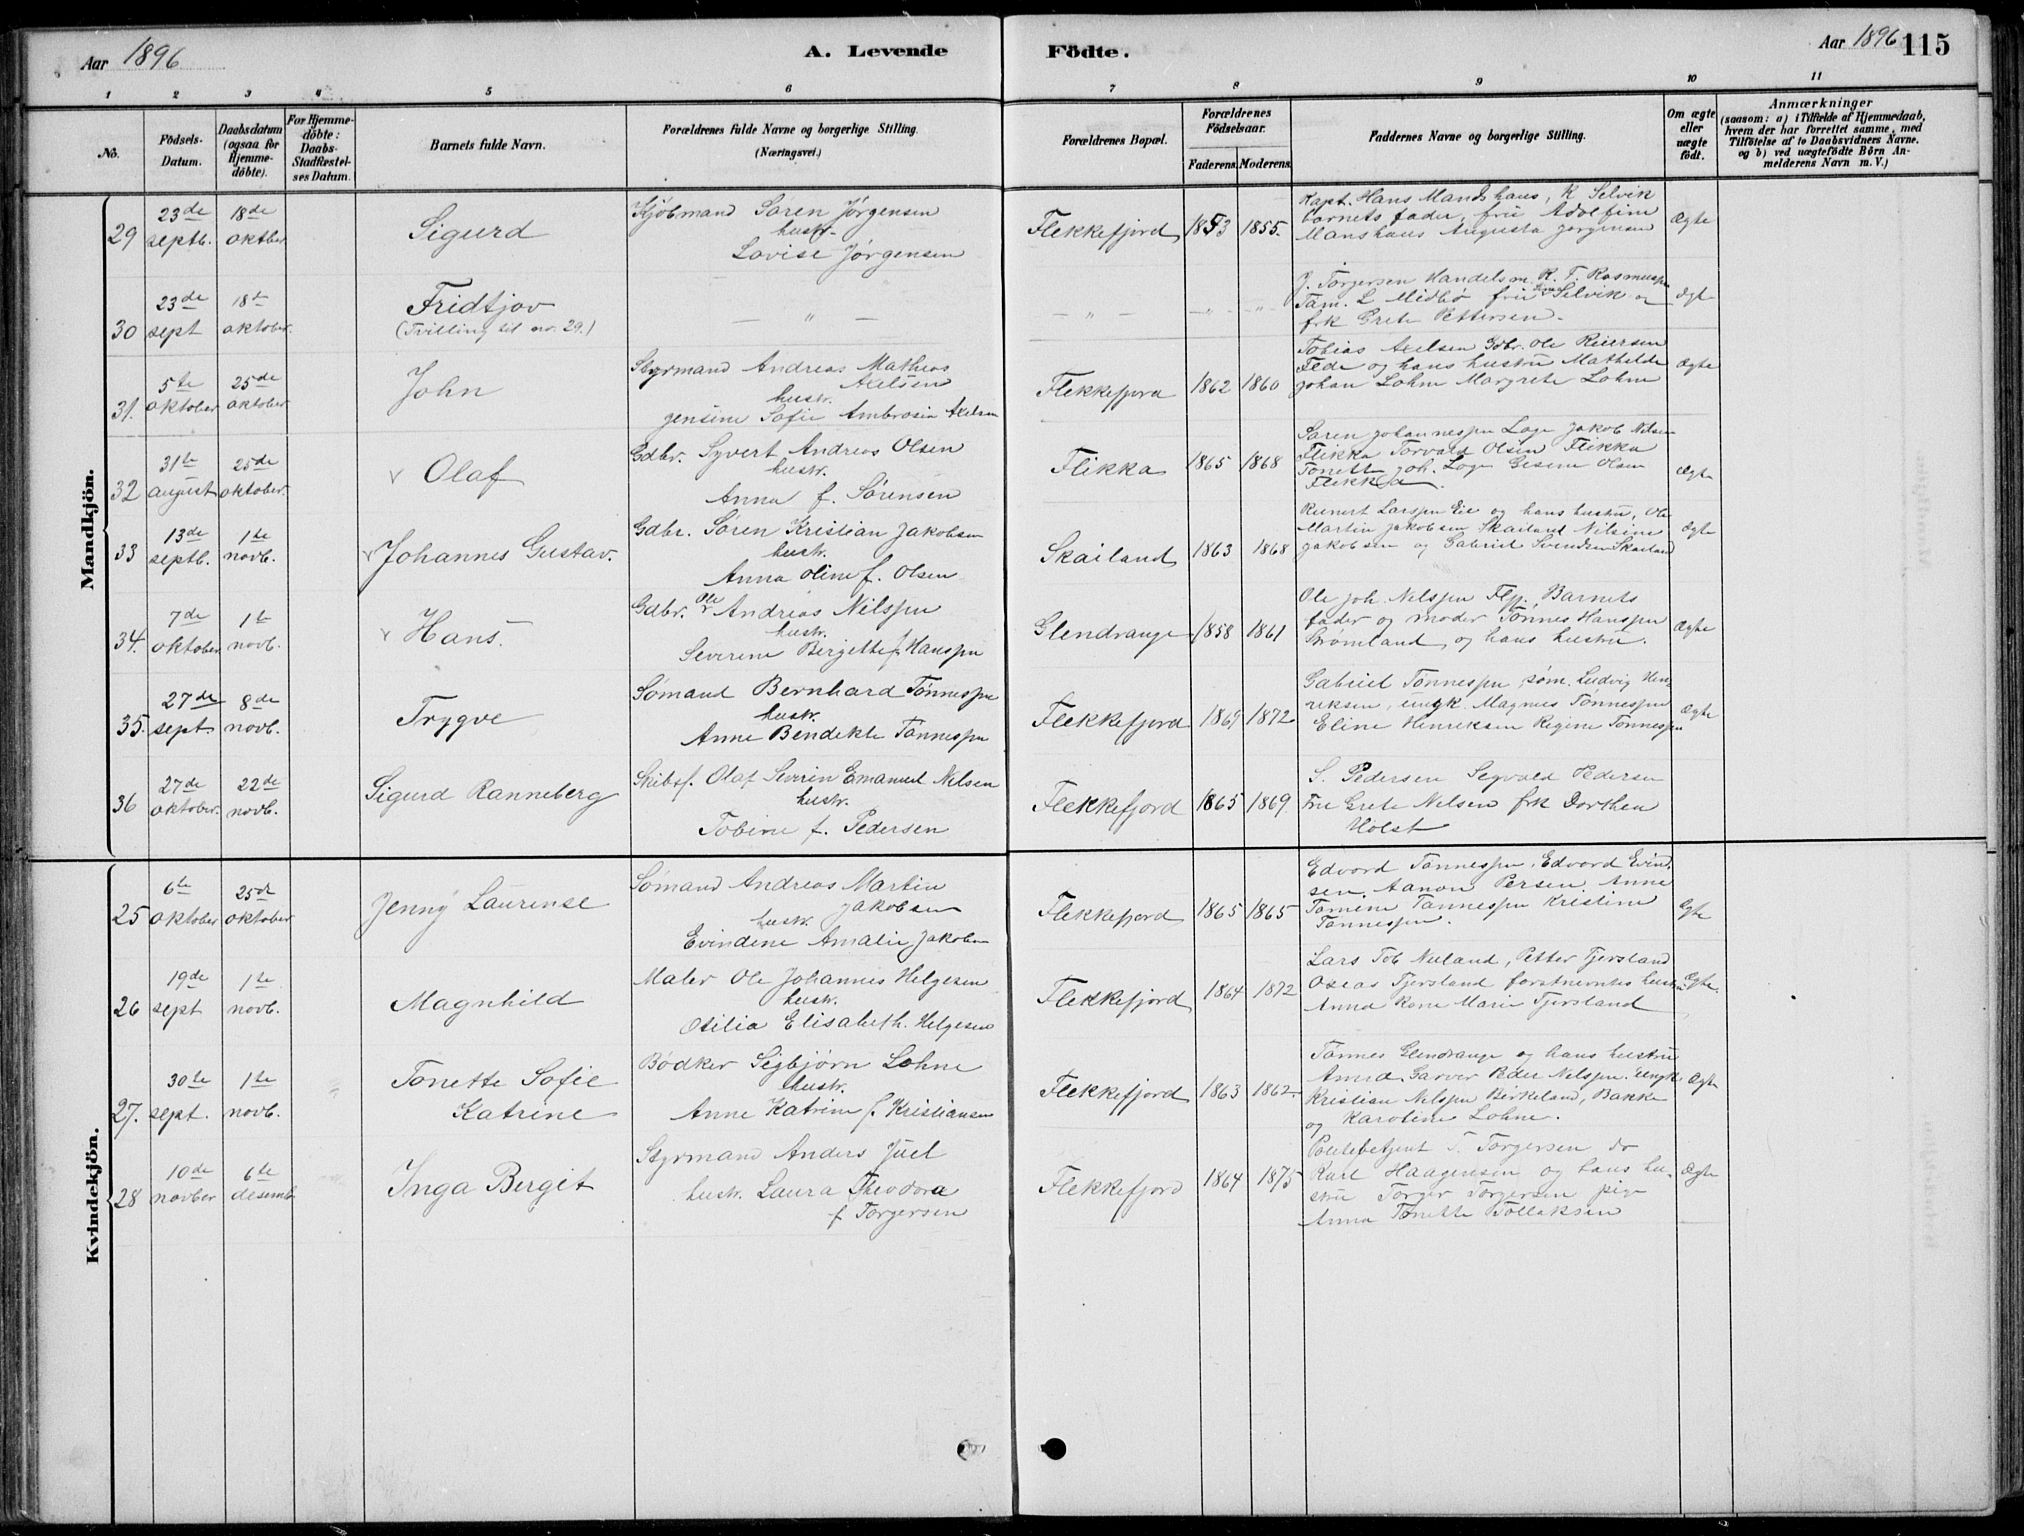 Aar 1896
A. Levende
Födte.
Aar 1896
115
1 2 3 4 5 6 7 8 9 10 11
No.
Födsels-
Datum.
Daabsdatum
(ogsaa for
Hjemme-
döbte).
For Hjemme-
döbte:
Daabs-
Stadfæstel-
ses Datum.
Barnets fulde Navn.
Forældrenes fulde Navne og borgerlige Stilling.
(Næringsvei.)
Forældrenes Bopæl.
Forældrenes
Födselsaar.
Faderens. Moderens.
Faddernes Navne og borgerlige Stilling.
Om ægte
eller
uægte
födt.
Anmærkninger
(saasom: a) i Tilfælde af Hjemmedaab,
hvem der har forrettet samme, med
Tilföielse af to Daabsvidners Navne.
og b) ved uægtefödte Börn An-
melderens Navn m.V.)
Mandkjön.
29
23de
septb.
18de
oktber
Sigurd
Kjöbmand Soren Jørgensen
hustr.
Lovise Jørgensen
Flekkefjord
1853
1855.
Kapt. Hans Manshaus, K Selvik
barnets fader, frue Adolfine
Manshaus Augusta Jørgensen
Ægte
30
23de
sept
18te
oktober.
Fridtjov
(Tvilling til no. 29.)
— " —
— " —
J. Torgersen Handelsm. R. T. Rasmussen
Tam. L Midbö frue Selvik og
frk Grete Pettersen.
Ægte
31.
5te
oktober
25de
oktober
John
Styrmand Andreas Mathias
Axelsen
hustr.
Gensine Sofie Ambrosia Axelsen
Flekkefjord
1862
1860
Tobias Axelsen Gdbr. Ole Reiersen
Fede og hans hustru Mathilde
Johan Lohne Margrete Lohne
Ægte
32
31te
august
25de
oktober.
Olaf
Gdbr. Syvert Andreas Olsen
hustr.
Anna f. Sørensen
Flikka
1865
1868
Soren Johannessen Loge Jakob Nilsen
Flikka Torvald Olsen Flikka
Tonette Joh. Loge Gesine Olsen
Flikka.
Ægte
33
13de
septb.
1te
novb.
Johannes Gustav.
Gdbr. Soren Kristian Jakobsen
hustr.
Anna Oline f. Olsen
Skailand
1863
1868
Reinert Larssen Eie og hans hustru, Ole
Martin Jakobsen Skailand Nilsine
Jakobsen og Gabriel Svendsen Skailand
Ægte
34.
7de
oktober
1te
novb.
Hans
Gdbr. Ole Andreas Nilssen
hustr.
Severine Birgitte f. Hanssen
Glendrange
1858
1861
Ole Joh. Nilssen Barnets
fader og moder Tönnes Hanssen
Brömland og hans hustru.
Ægte
35.
27de
sept
8de
novb.
Trygve
Sömand Bernhard Tönnessen
hustr.
Anne Bendikte Tönnessen
Flekkefjord
1869
1872
Gabriel Tönnessen, söm. Ludvig Hen-
riksen, ungk. Magnus Tönnessen
Eline Henriksen Regine Tönnessen
Ægte
36
27de
oktober.
22de
novb.
Sigurd Ranneberg
Skibsf. Olaf Severin Emanuel Nilsen
hustr.
Tobine f. Pedersen
Flekkefjord
1865
1869.
S. Pedersen Segvald Pedersen
Frue Grete Nilsen frk Dorthea
Holst
Kvindekjön.
25
6te
oktober
25de
oktober
Jenny Laurense
Sömand Andreas Martin
Jakobsen
hustr.
Evindine Amalie Jakobsen
Flekkefjord
1865
1865
Edvard Tonnessen, Edvard Evind-
sen, Aanon Persen. Anne
Tomine Tonnessen Kristine
Tonnessen.
Ægte
26
19de
sept
1te
novb.
Magnhild
Maler Ole Johannes Helgesen
hustr.
Otilia Elisabeth. Helgesen
Flekkefjord
1864
1872
Lars Tob Nuland, Petter Tjersland
Oseas Tjersland forstnevntes hustru
Anna Karen Marie Tjersland
Ægte.
27.
30te
sept.
1te
novb.
Tonette Sofie
Katrine
Bödker Sigbjörn Lohne
hustr.
Anne Katrine f Kristiansen
Flekkefjord
1863
1862.
Tönnes Glendrange og hans hustru
Anna. Garver Peder Nilssen. Ungk
Kristian Nilssen Birkeland, Bakke
og Karoline Lohne.
Ægte
28
10de
novber
6te
desemb
Inga Bergit
Styrmand Anders Juel
hustr. Laura Theodora
f Torgersen
Flekkefjord
1864
1875
Politibetjent T. Torgersen do
Karl Haagensen og hans hu-
stru Torger Torgersen pige
Anna Tonette Tollaksen
Ægte